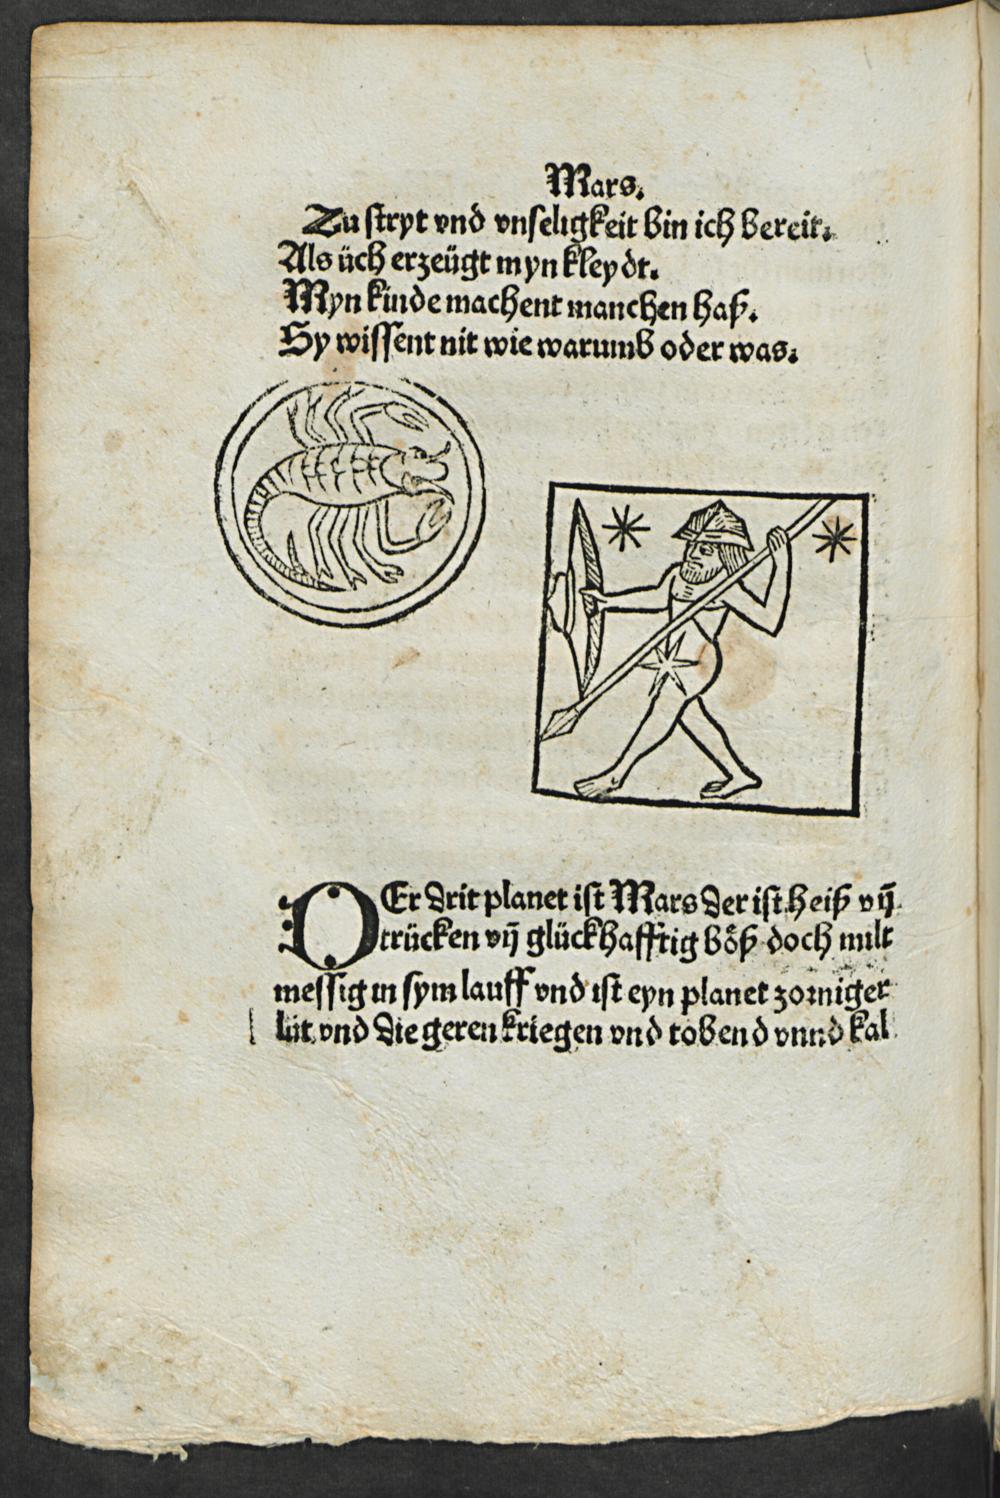 Mars.
Zu stryt vnd vnseligkeit bin ich bereit.
Als üch erzeügt myn kleydt.
Myn kinde machent manchen haß.
Sy wissent nit wie warumb oder was.
DEr drit planet ist Mars der ist heiß vn̄
trücken vn̄ glückhafftig bo̊ß doch milt
messig in sym lauff vnd ist eyn planet zorniger
lüt vnd die geren kriegen vnd tobend vnnd kal